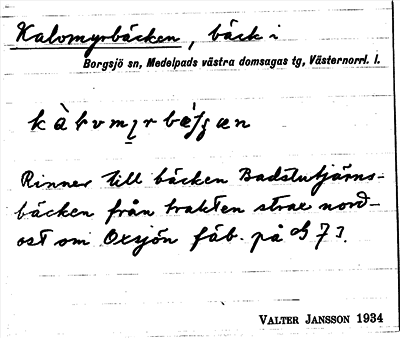 Kalvmyrbäcken, bäck i
Borgsjö sn, Medelpads västra domsagas tg, Västernorrl. l.
Rinner till bäcken Badstutjärns-
bäcken från trakten strax nord-
ost om Oxsjön fäb. på
VALTER JANSSON 1934